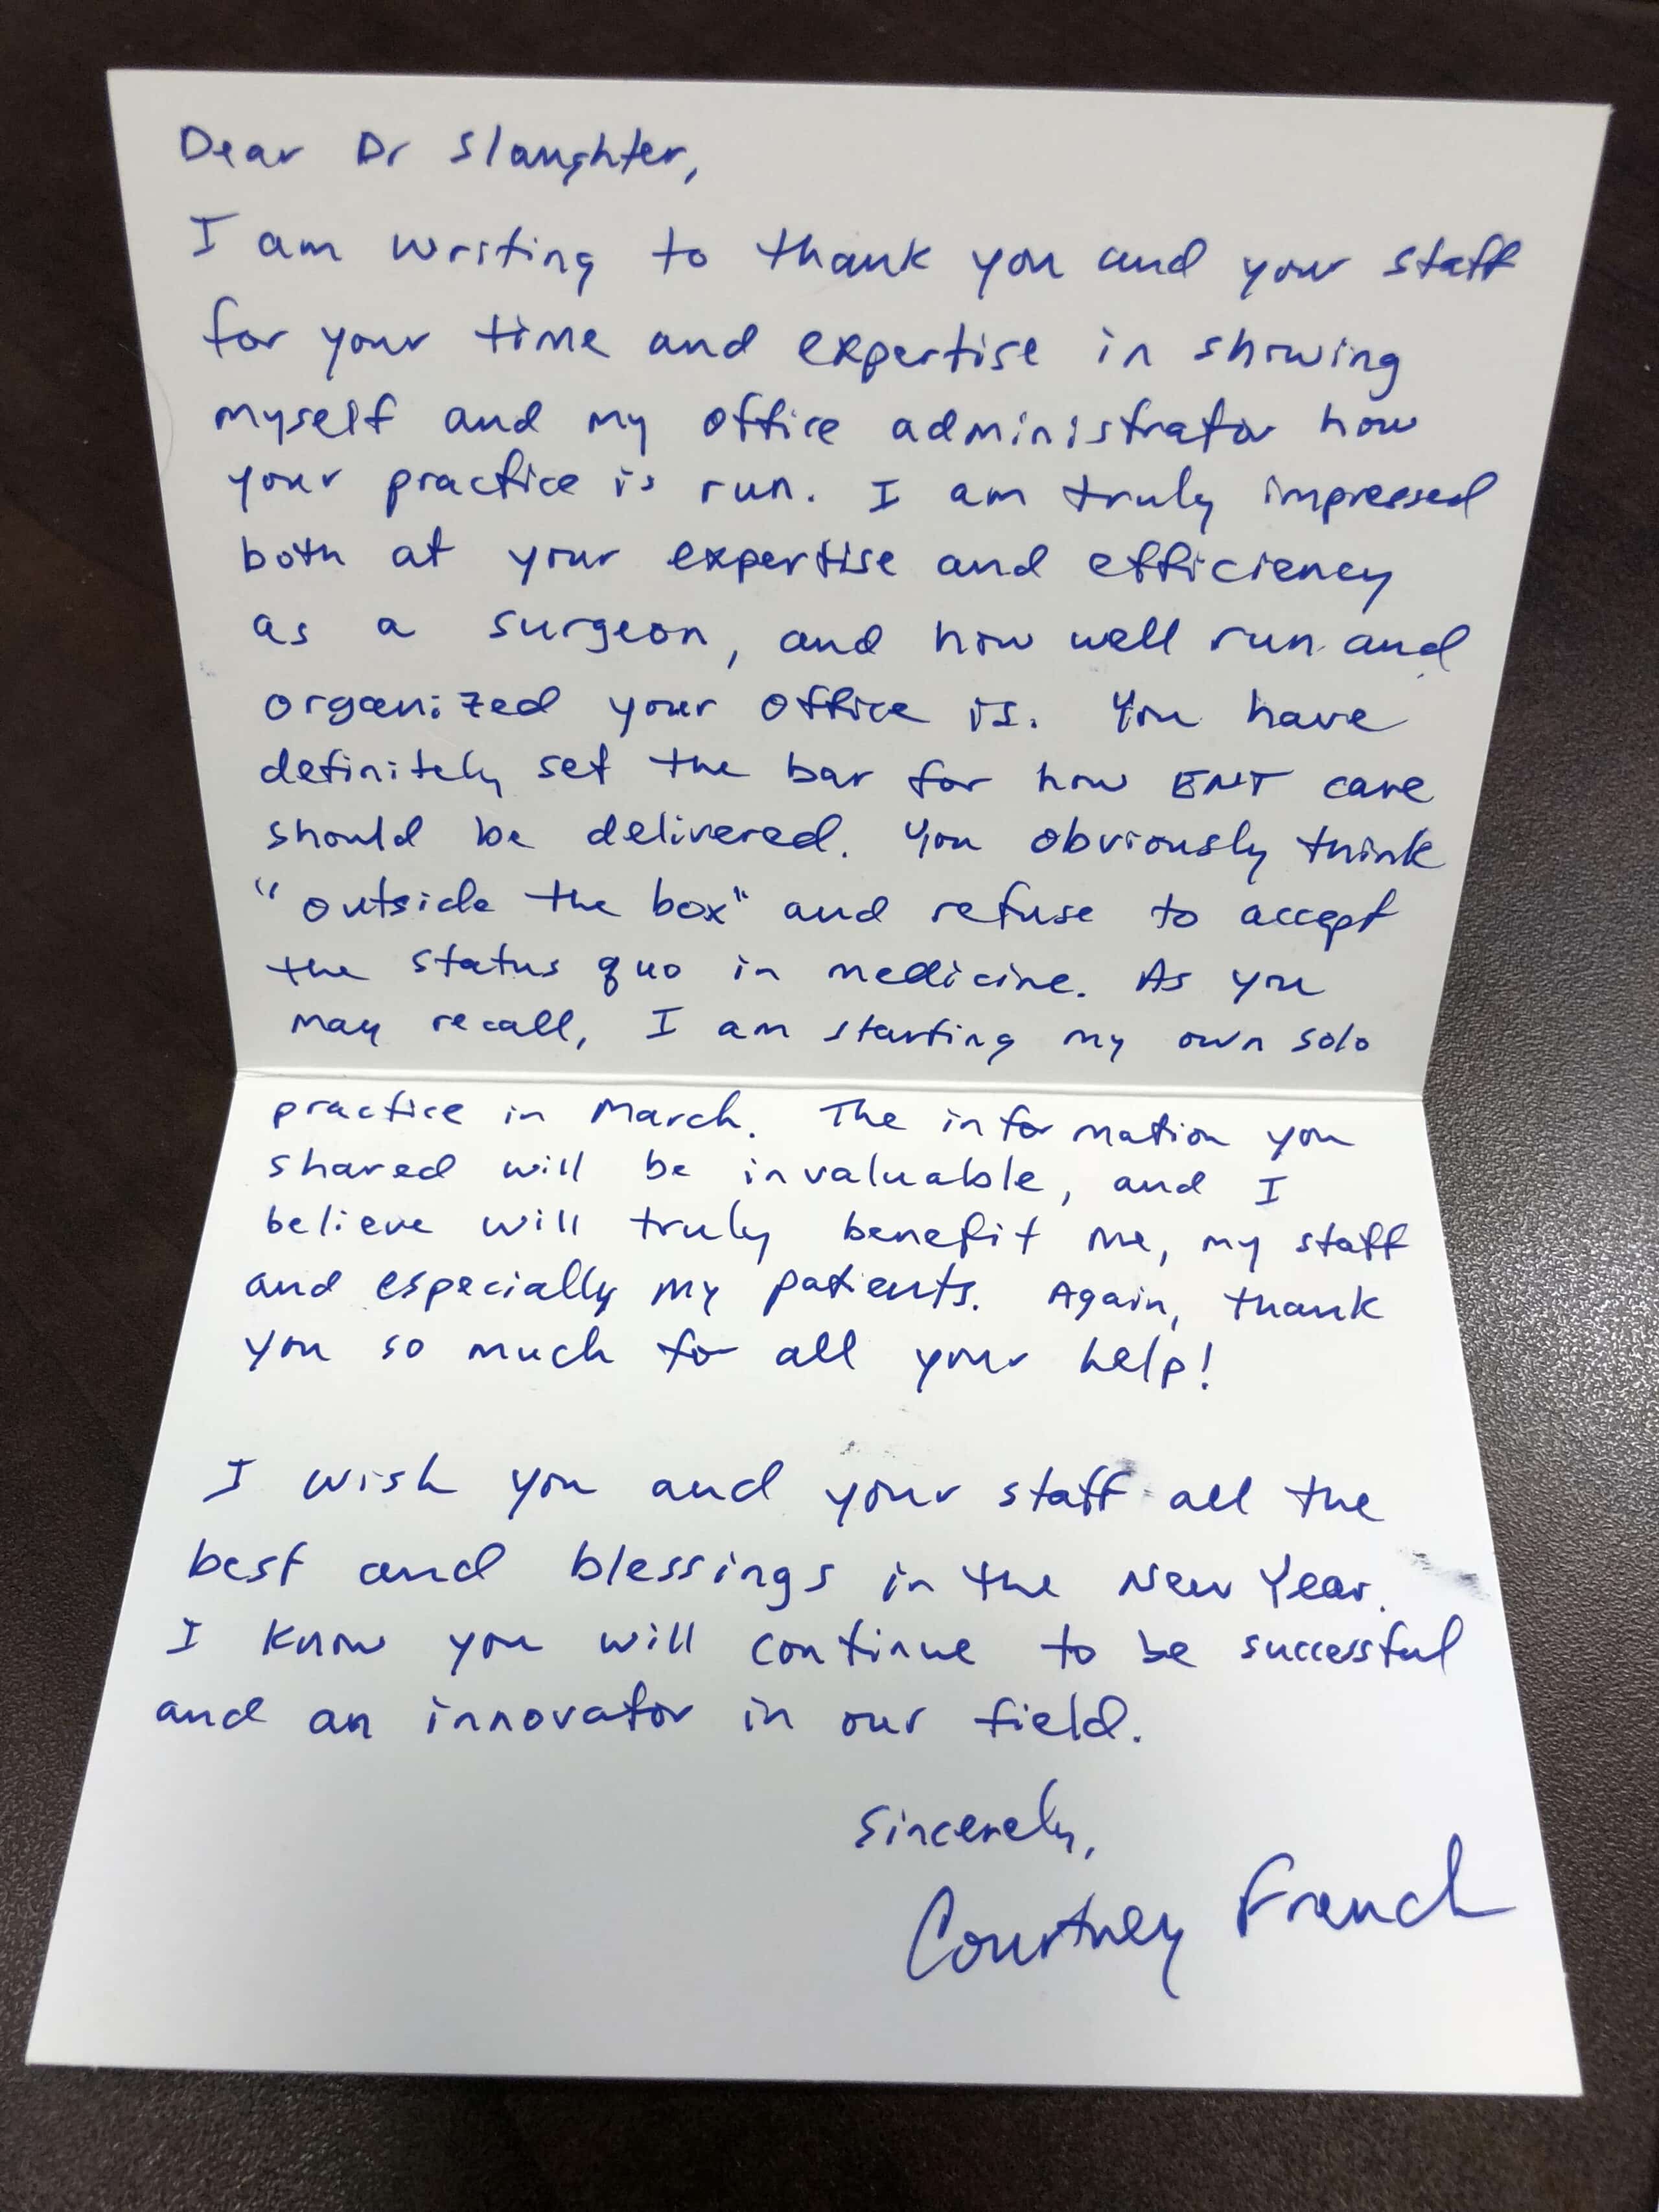 Dear Dr Slaughter,
I am writing to thank you and your staff
for your time and expertise in showing
myself and my office administrator how
your practice is run. I am truly impressed
both at your expertise and efficiency
as a surgeon, and how well run and
organized your office is. You have
definitely set the bar for how ENT care
should be delivered. You obviously think
"outside the box" and refuse to accept
the status quo in medicine. As you
may recall, I am starting my own solo
practice in March. The information you
shared will be invaluable, and I
believe will truly benefit me, my staff
and especially my patients. Again, thank
you so much for all your help!
I wish you and your staff all the
best and blessings in the New Year.
I know you will continue to be successful
and an innovator in our field.
Sincerely,
Courtney French